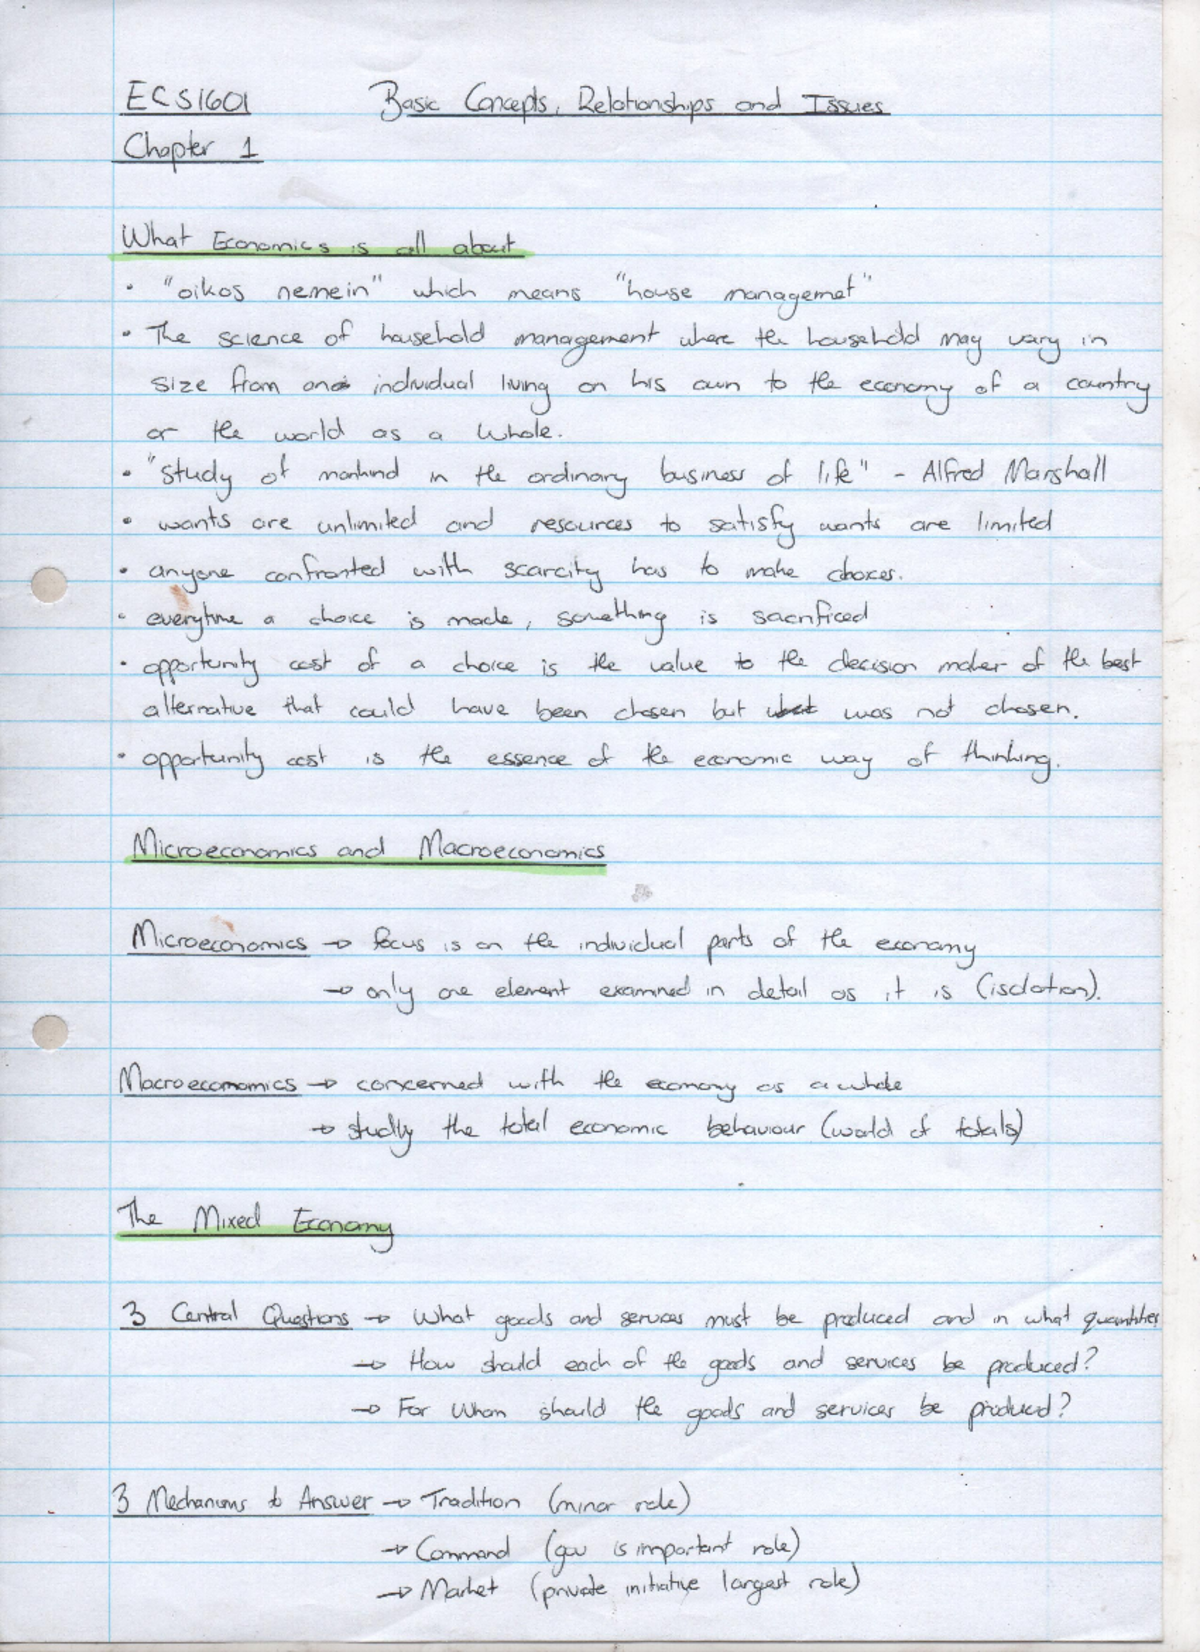 ECS1601 Basic Concepts, Relationships and Issues
Chapter 1
What Economics is all about
• "oikos nemein" which means "house managemet"
• The science of household management where the household may vary in
size from one individual living on his own to the economy of a country
or the world as a whole.
• "study of mankind in the ordinary business of life" - Alfred Marshall
• wants are unlimited and resources to satisfy wants are limited
• anyone confronted with scarcity has to make choices.
• everytime a choice is made, something is sacrificed
• opportunity cost of a choice is the value to the decision maker of the best
alternative that could have been chosen but was not chosen.
• opportunity cost is the essence of the economic way of thinking.
Microeconomics and Macroeconomics
Microeconomics → focus is on the individual parts of the economy
→ only one element examined in detail as it is (isolation).
Macroeconomics → concerned with the economy as a whole
→ study the total economic behaviour (world of totals)
The Mixed Economy
3 Central Questions → What goods and services must be produced and in what quantities
→ How should each of the goods and services be produced?
→ For Whom should the goods and services be produced?
3 Mechanisms to Answer → Tradition (minor role)
→ Command (gov is important role)
→ Market (private initiative largest role)